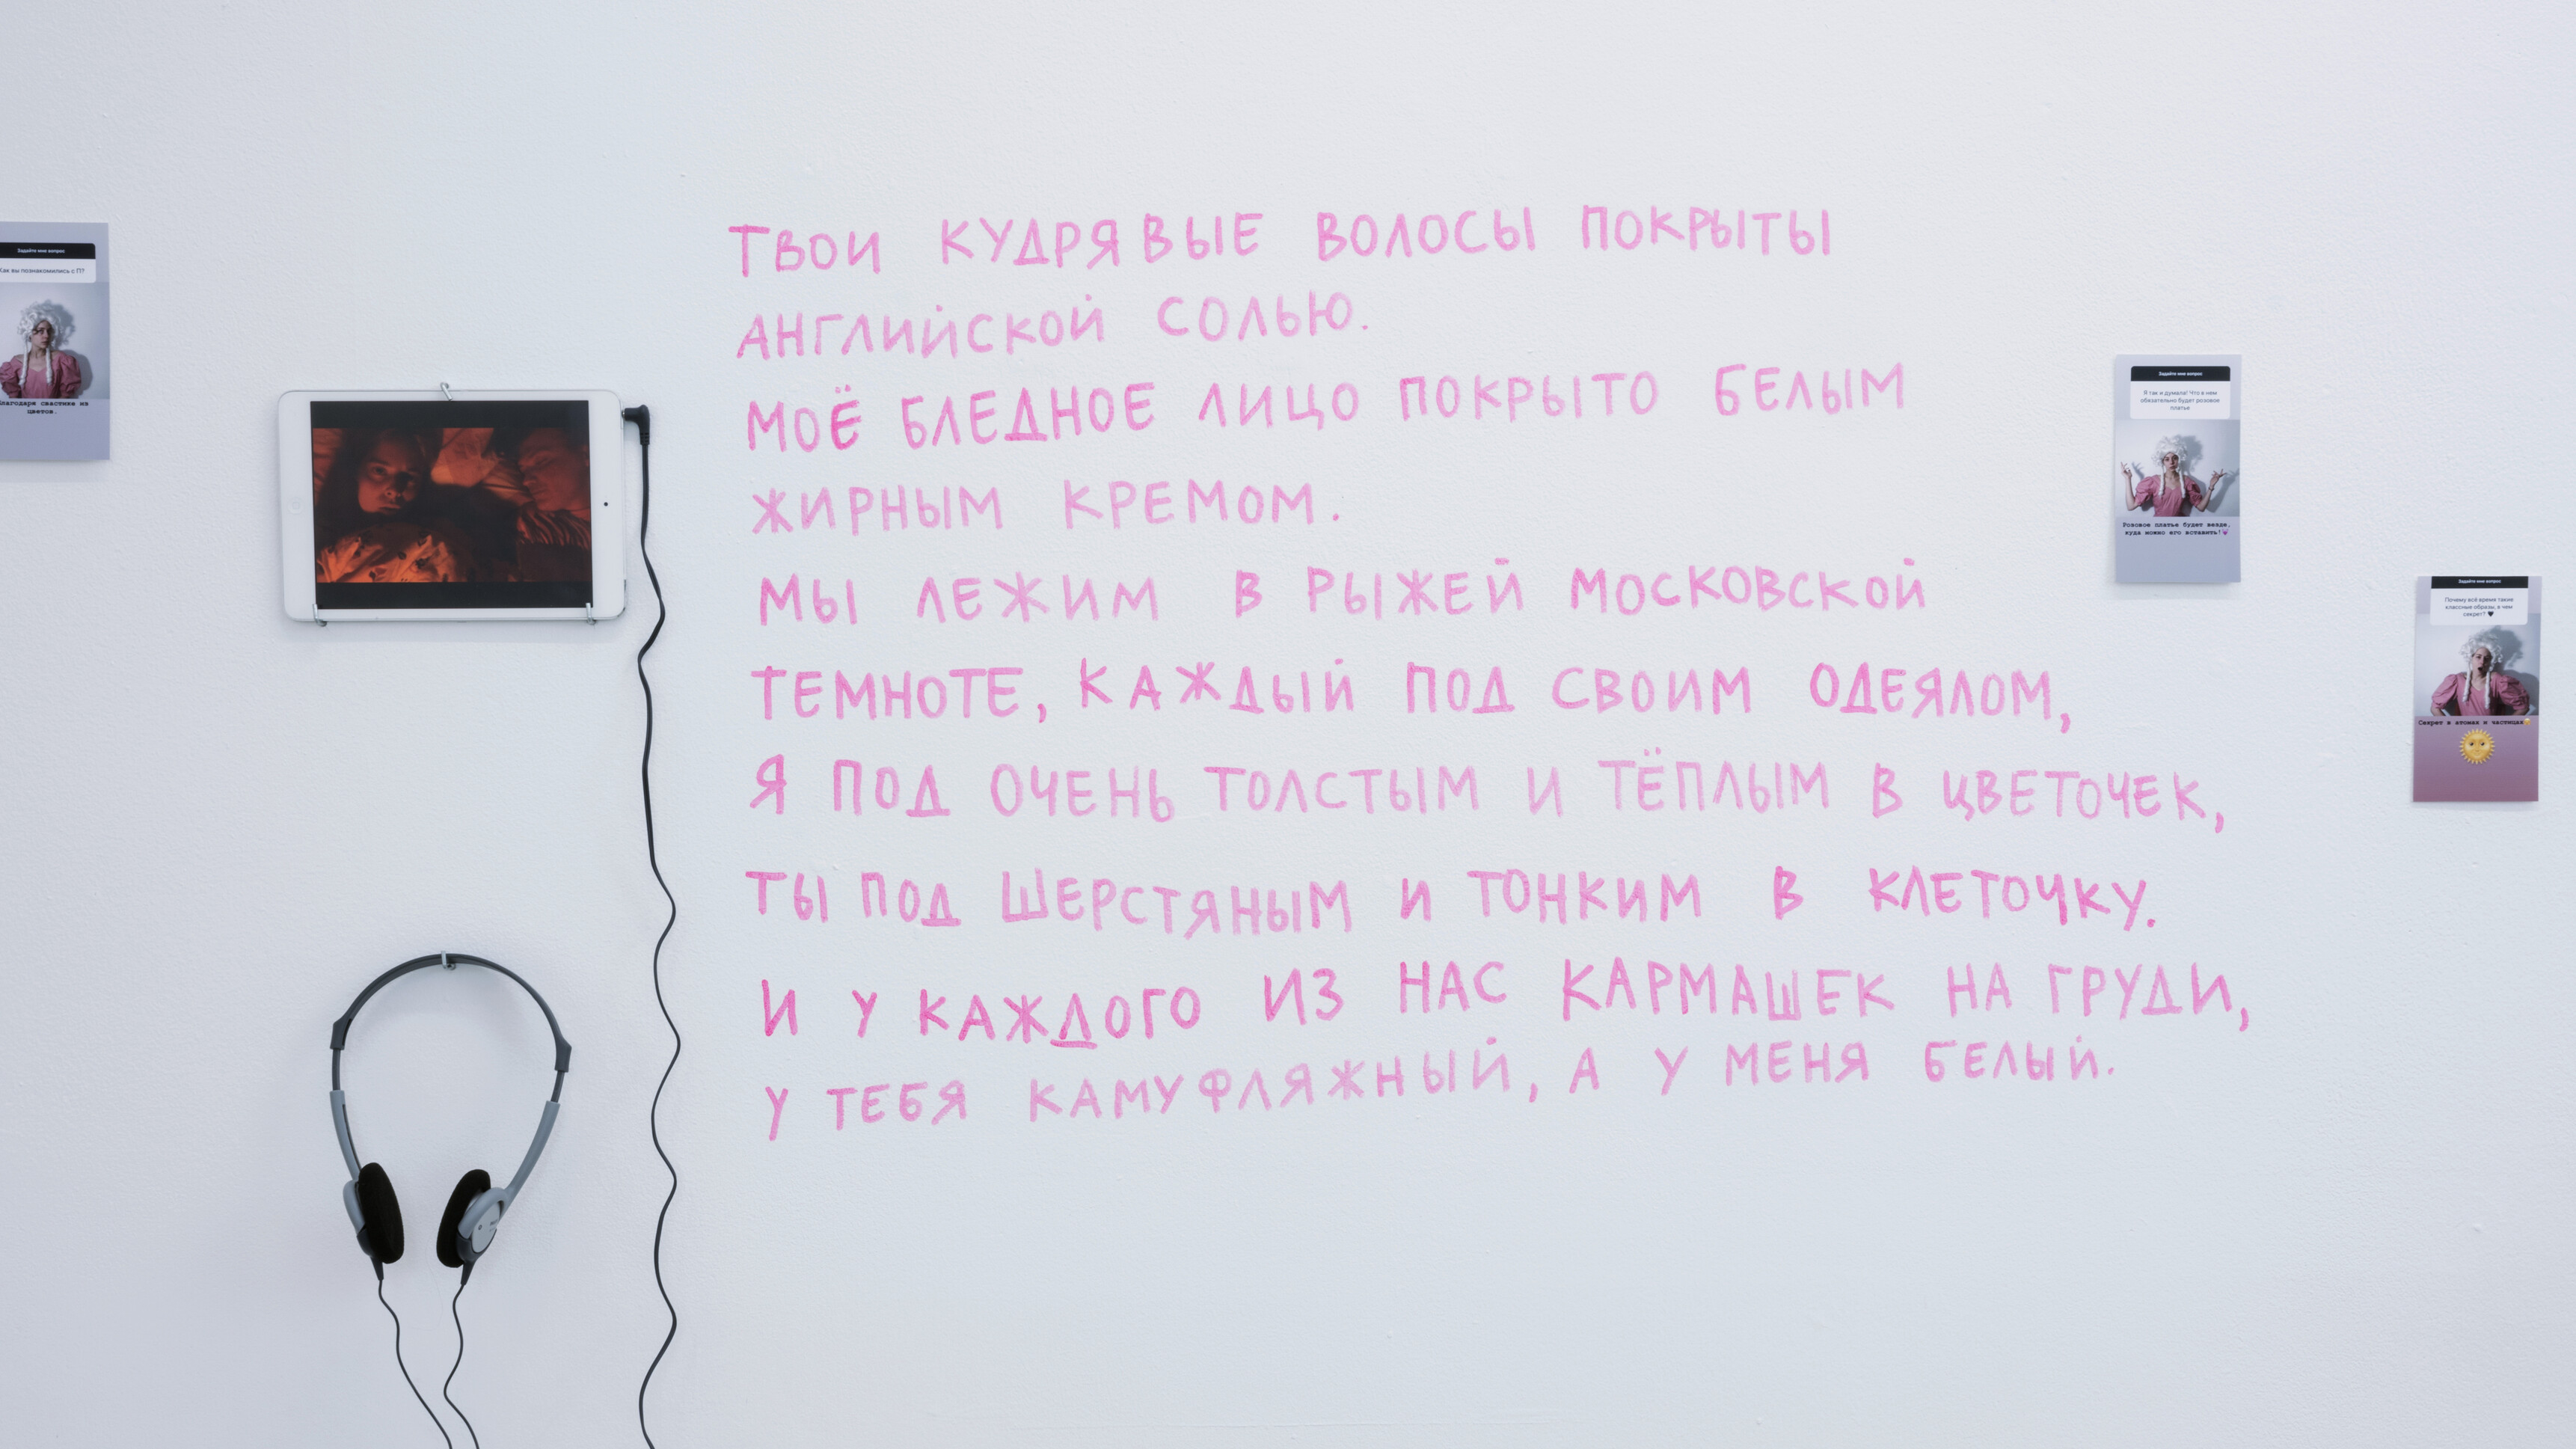 Задайте мне вопрос
Как вы познакомились с П?
Благодаря свастике из
цветов.
ТВОИ КУДРЯВЫЕ ВОЛОСЫ ПОКРЫТЫ
АНГЛИЙСКОЙ СОЛЬЮ.
МОЁ БЛЕДНОЕ ЛИЦО ПОКРЫТО БЕЛЫМ
ЖИРНЫМ КРЕМОМ.
МЫ ЛЕЖИМ В РЫЖЕЙ МОСКОВСКОЙ
ТЕМНОТЕ, КАЖДЫЙ ПОД СВОИМ ОДЕЯЛОМ,
Я ПОД ОЧЕНЬ ТОЛСТЫМ И ТЁПЛЫМ В ЦВЕТОЧЕК,
ТЫ ПОД ШЕРСТЯНЫМ И ТОНКИМ В КЛЕТОЧКУ.
И У КАЖДОГО ИЗ НАС КАРМАШЕК НА ГРУДИ,
У ТЕБЯ КАМУФЛЯЖНЫЙ, А У МЕНЯ БЕЛЫЙ.
Задайте мне вопрос
Я так и думала! Что в нем
обязательно будет розовое
платье
Розовое платье будет везде,
куда можно его вставить!
Задайте мне вопрос
Почему всё время такие
классные образы, в чем
секрет? 🖤
Секрет в атомах и частицах